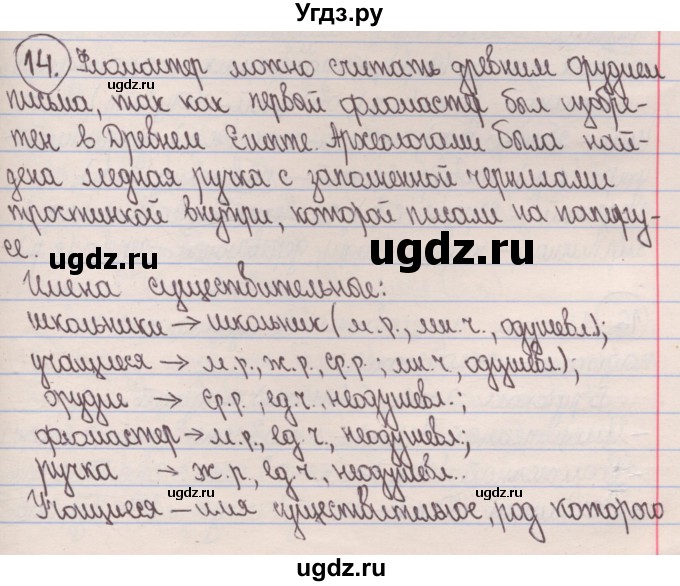 Угдз.ру
14. Фломастер можно считать древним орудием
письма, так как первый фломастер был изобре-
тен в Древнем Египте. Археологами была най-
дена медная ручка с заполненной чернилами
тростинкой внутри, которой писали на папиру-
се.
Имена существительные:
школьники → школьник (м.р., мн.ч., одушевл.);
учащиеся → м.р., ж.р., ср.р., мн.ч., одушевл.);
орудие → ср.р., ед.ч., неодушевл.;
фломастер → м.р., ед.ч., неодушевл.;
ручка → ж.р., ед.ч., неодушевл.
Учащиеся – имя существительное, род которого
ugdz.ru
ugdz.ru
ugdz.ru
ugdz.ru
ugdz.ru
ugdz.ru
ugdz.ru
ugdz.ru